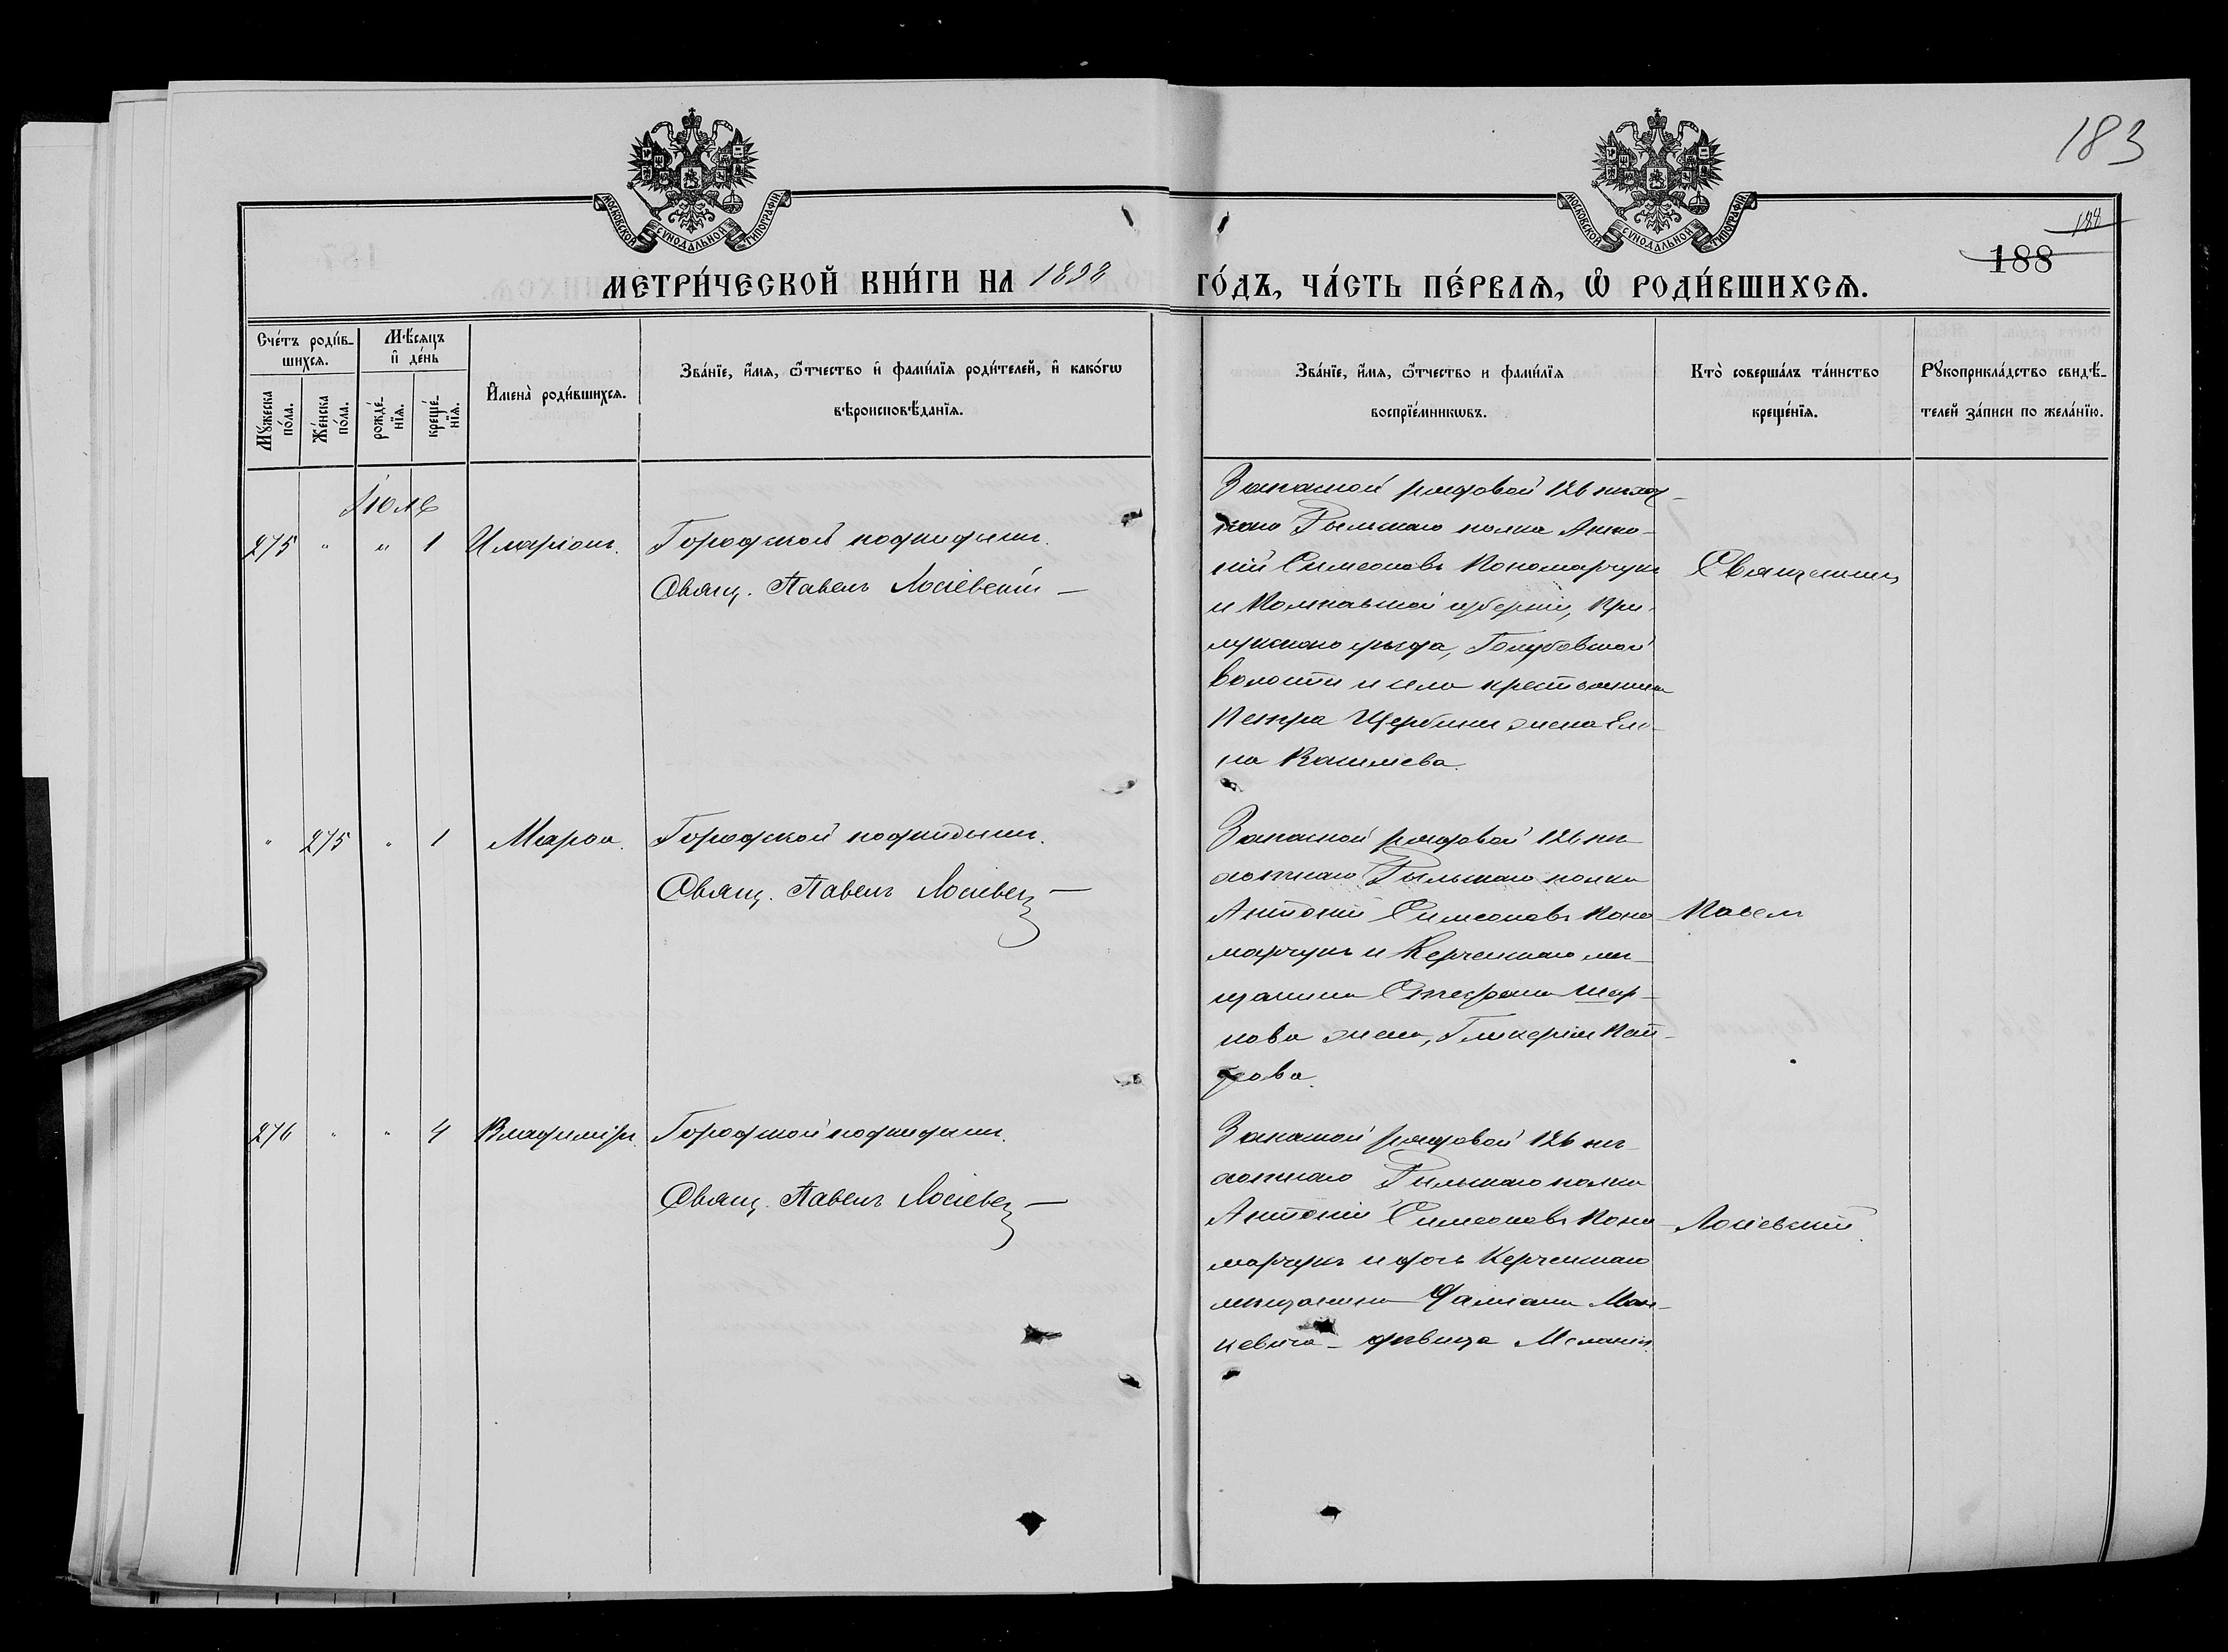 183
188
188
МОСКОВСКОЙ СѴНОДАЛЬНОЙ ТИПОГРАФІИ
МОСКОВСКОЙ СѴНОДАЛЬНОЙ ТИПОГРАФІИ
МЕТРИ́ЧЕСКОЙ КНИ́ГИ НА 1898 ГО́ДЪ, ЧА́СТЬ ПЕ́РВАѦ, Ѡ҆ РОДИ́ВШИХСѦ.
Сче́тъ роди́в-
шихсѧ.
Мꙋ́жеска по́ла.
Же́нска по́ла.
Мѣ́сѧцъ и҆ де́нь
рожде́-нїѧ.
креще́-нїѧ.
И҆мена̀ роди́вшихсѧ.
Зва́нїе, и҆́мѧ, ѻ҆́тчество и҆ фами́лїѧ роди́телей, и҆ како́гѡ
вѣроисповѣ́данїѧ.
Зва́нїе, и҆́мѧ, ѻ҆́тчество и фами́лїѧ
воспрїе́мникѡвъ.
Кто̀ соверша́лъ та́инство
креще́нїѧ.
Рꙋкоприкла́дство свидѣ́-
телей за́писи по жела́нїю.
Іюль
275 " " 1 Иларіонъ. Городской подкидышъ.
Свящ. Павелъ Лосіевскій
Запасной рядовой 126 пѣхот-
наго Рыльскаго полка Анто-
ній Симеоновъ Пономарчукъ
и Полтавской губерніи, При-
лукскаго уѣзда, Голубовской
волости и села крестьянина
Петра Щербины жена Еле-
на Васильева.
Священникъ
" 275 " 1 Марѳа. Городской подкидышъ.
Свящ. Павелъ Лосіевск
Запасной рядовой 126 пѣ-
хотнаго Рыльскаго полка
Антоній Симеоновъ Поно-
марчукъ и Керченскаго мѣ-
щанина Стефана
нова жена, Гликерія
Павелъ
276 " " 4 Владиміръ. Городской подкидышъ.
Свящ. Павелъ Лосіевск
Запасной рядовой 126 пѣ-
хотнаго Рыльскаго полка
Антоній Симеоновъ Поно-
марчукъ и дочь Керченскаго
мѣщанина Даміана Мац-
кевича - дѣвица Меланія.
Лосіевскій.